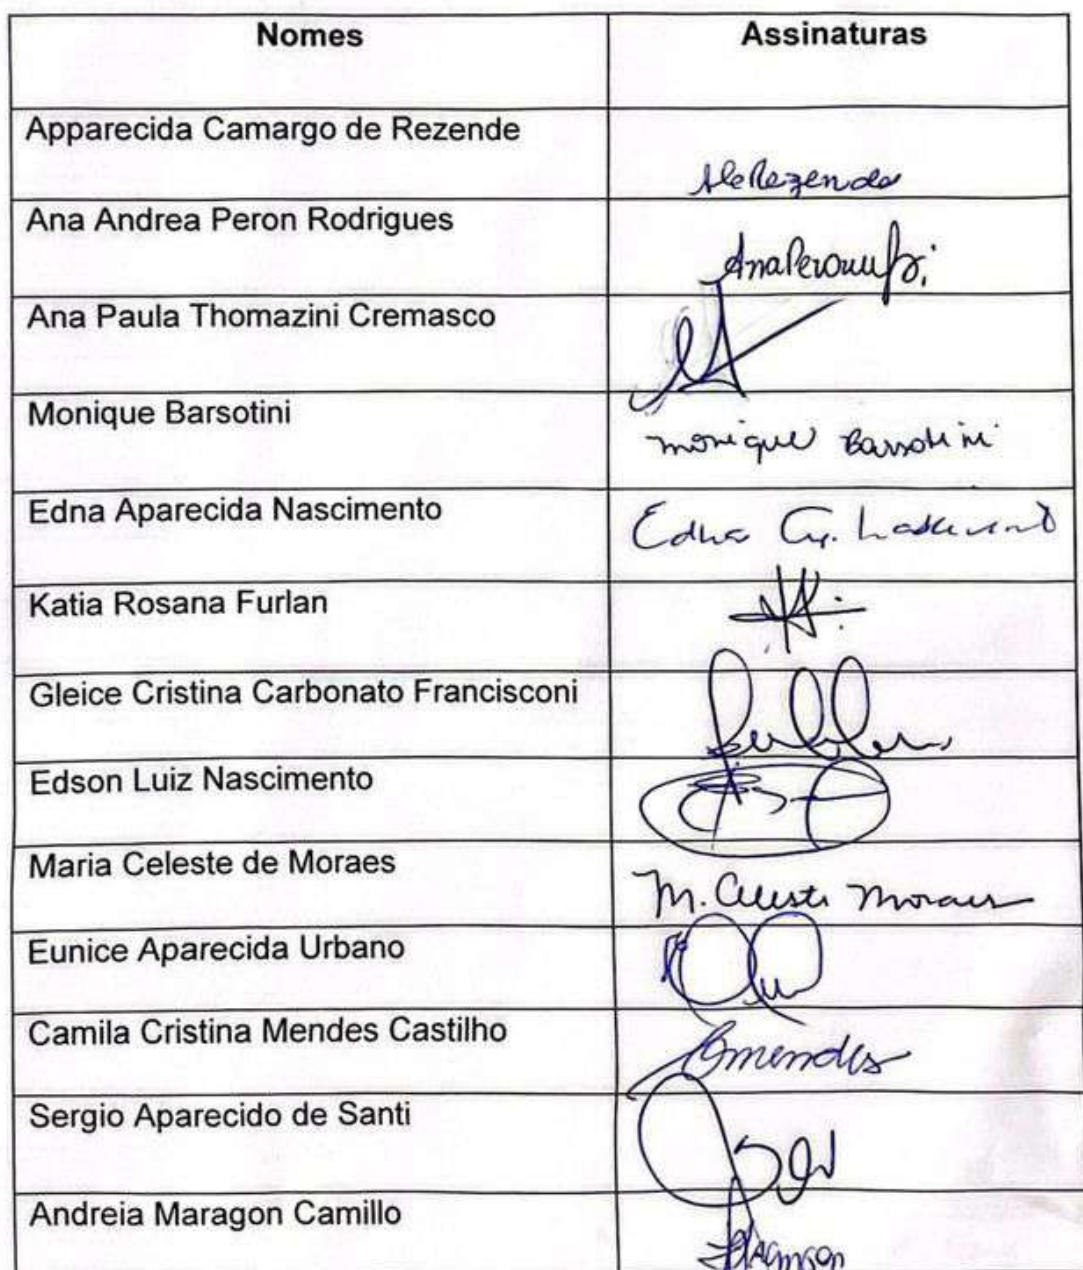 Nomes Assinaturas
Apparecida Camargo de Rezende
Ana Andrea Peron Rodrigues
Ana Paula Thomazini Cremasco
Monique Barsotini monique Barsotini
Edna Aparecida Nascimento Edna Ap. Nascimento
Katia Rosana Furlan
Gleice Cristina Carbonato Francisconi
Edson Luiz Nascimento
Maria Celeste de Moraes M. Celeste Moraes
Eunice Aparecida Urbano
Camila Cristina Mendes Castilho Cmendes
Sergio Aparecido de Santi
Andreia Maragon Camillo